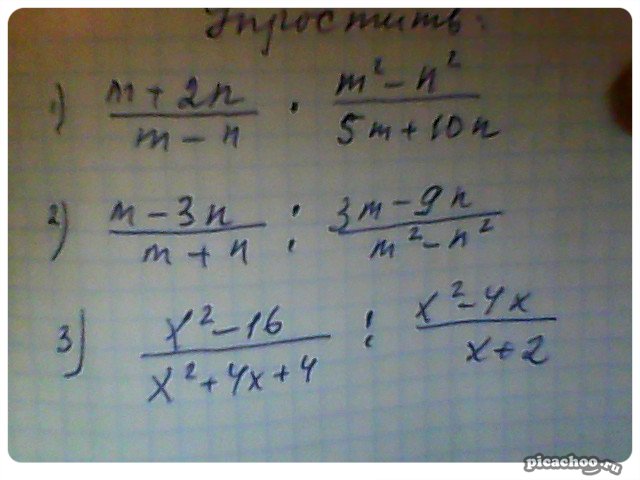 Упростить:
1) (m + 2n)/(m - n) · (m² - n²)/(5m + 10n)
2) (m - 3n)/(m + n) : (3m - 9n)/(m² - n²)
3) (x² - 16)/(x² + 4x + 4) : (x² - 4x)/(x + 2)
picachoo.ru